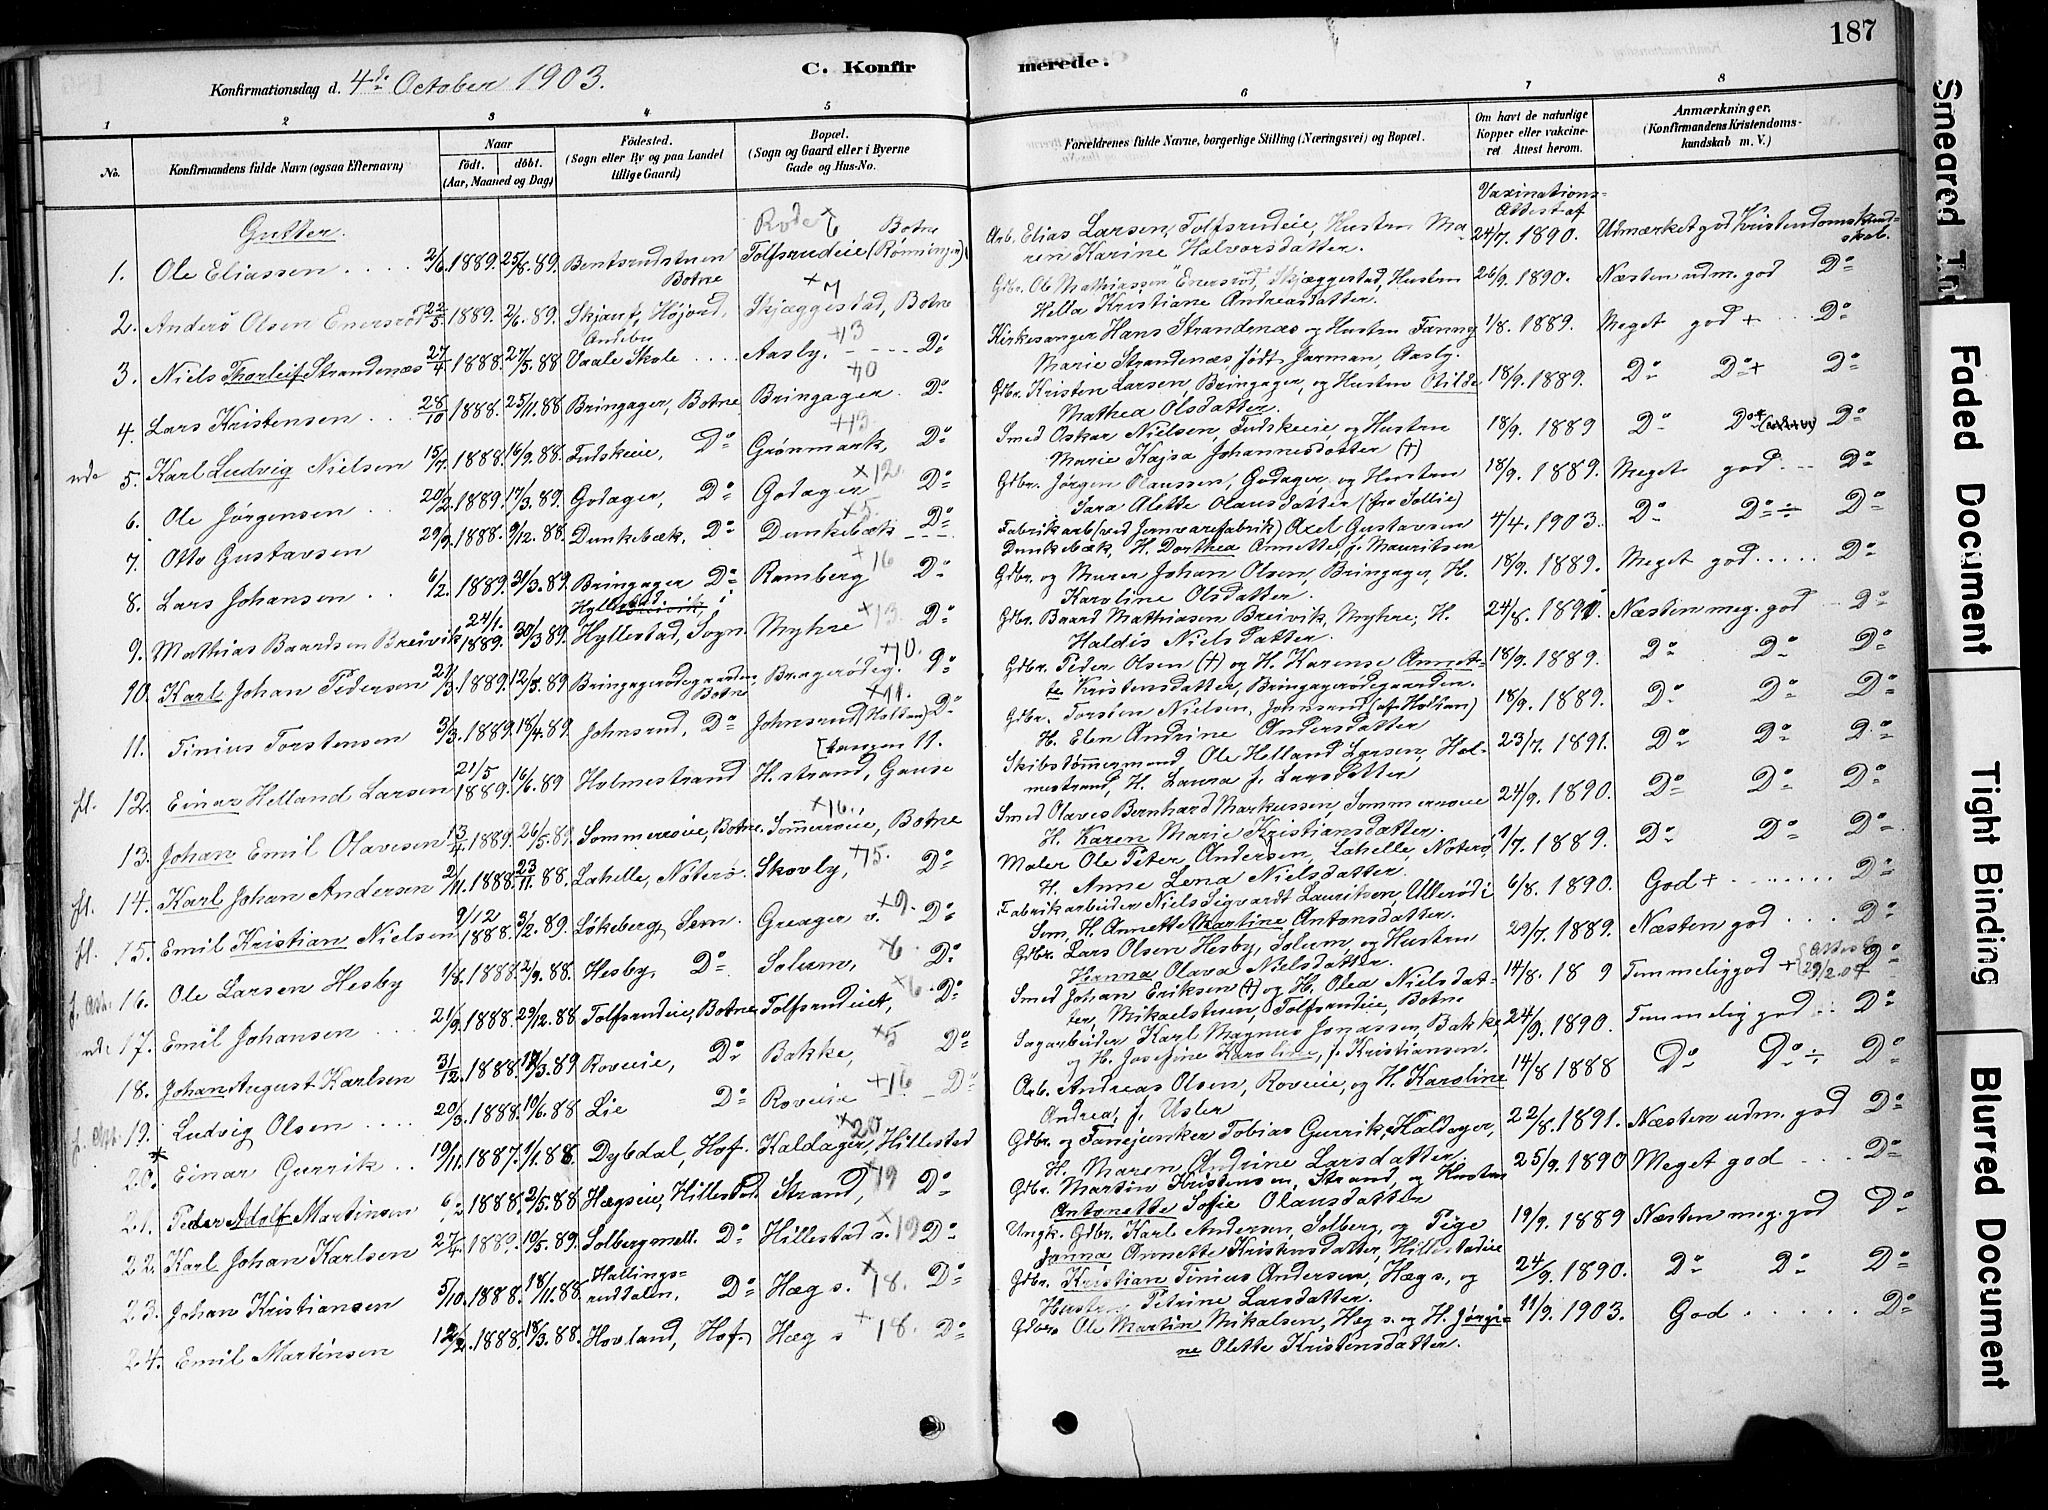 187
C. Konfir
merede.
Konfirmationsdag d. 4de October 1903.
1
2
3
4
5
6
7
8
No.
Konfirmandens fulde Navn (ogsaa Efternavn)
Naar
födt. döbt.
(Aar, Maaned og Dag)
Födested.
(Sogn eller By og paa Landet
tillige Gaard)
Bopæl.
(Sogn og Gaard eller i Byerne
Gade og Hus-No.
Forældrenes fulde Navne, borgerlige Stilling (Næringsvei) og Bopæl.
Om havt de naturlige
Kopper eller vakcine-
ret Attest herom.
Anmærkninger.
(Konfirmandens Kristendoms-
kundskab m. V.)
Gutter.
Rode 6
Vaxinations-
Attest af
1. Ole Eliassen 2/6. 1889. 25/8. 89. Bentsrudstuen Botne Tolfsrudeie (Rønningen) Botne
Arb. Elias Larsen, Tolfsrudeie, Hustru Ma-
ren Karine Halvorsdatter.
24/7. 1890. Udmærket god Kristendomskund-
skab.
2. Anders Olsen Enersrød 22/5. 1889. 2/6. 89. Skjaut, Højord, Andebu Skjæggestad, Botne + 7
Gdbr. Ole Mathiassen Enersrød, Skjæggestad, Hustru
Hella Kristiane Andreasdatter.
26/9. 1890. Næsten udm. god Do
3. Niels Thorleif Strandenæs 27/4. 1888. 27/5. 88 Vaale Skole Aasby. Do +3
Kirkesanger Hans Strandenæs og Hustru Fanny
Marie Strandenæs, født Jarman, Aasby.
1/8. 1889. Meget god + Do
4. Lars Kristensen 28/10 1888. 25/11. 88 Bringager, Botne Bringager. Do +0
Gdbr. Kristen Larsen, Bringager, og Hustru Otilde
Mathea Olsdatter.
18/9. 1889. Do Do+ Do
5. Karl Ludvig Nielsen 15/7. 1888. 16/9. 88. Fudskeie, Do Grønmark, Do +13
Smed Oskar Nielsen, Fudskeie og Hustru
Marie Kajsa Johannesdatter (+)
18/9. 1889 Do Do+ Do
6. Ole Jørgensen 20/2. 1889. 17/3. 89. Godager, Do Godager Do +12.
Gdbr. Jørgen Olaussen, Godager, og Hustru
Sara Alette Olausdatter (fra Sollie)
18/9. 1889. Meget god Do
7. Otto Gustavsen 29/9. 1888. 9/12. 88. Dunkebæk, Do Dunkebæk Do +5.
Fabrikarb (ved Jernvarefabrik) Axel Gustavsen
Dunkebæk, H. Dorthea Annette, f. Mauritsen
4/4. 1903. Do Do ÷ Do
8. Lars Johansen 6/2. 1889. 31/3. 89. Bringager Do Ramberg Do +16
Gdbr. og Murer Johan Olsen, Bringager, H.
Karoline Olsdatter.
18/9. 1889. Meget god Do
9. Mathias Baardsen Breivik 24/1. 1889. 30/3. 89. Hyllestad, Sogn Myhre Do +13.
Gdbr. Baard Mathiasen Breivik, Myhre, H.
Haldis Nielsdatter.
24/8. 1891. Næsten meg. god Do
10. Karl Johan Pedersen 21/3. 1889. 12/5. 89. Bringagerødegaarden, Botne Bringagerødeg. Do +10.
Gdbr. Peder Olsen (+) og H. Karense Annet-
te Kristensdatter, Bringagerødegaarden.
18/9. 1889. Do Do Do
11. Tinius Torstensen 3/3. 1889. 18/4. 89 Johnsrud, Do Johnsrud (Holtan) Do +11.
Gdbr. Torsten Nielsen, Johnsrud (af Holtan)
H. Elen Andrine Andersdatter
18/9. 1889. Do Do Do
12. Einar Helland Larsen 21/5 1889. 16/6. 89 Holmestrand H.strand, Gause [tangen 11.
Skibstømmermand Ole Helland Larsen, Hol-
mestrand, H. Laura f. Larsdatter
23/7. 1891. Do Do Do
13. Johan Emil Olavesen 13/4. 1889. 26/5. 89 Sommerøeie, Botne. Sommerøeie, Botne +16.
Smed Olaves Bernhard Markussen, Sommerøeie
H. Karen Marie Kristiansdatter.
24/9. 1890. Do Do Do
14. Karl Johan Andersen 2/11. 1888. 23/11. 88. Lahelle, Nøterø Skovly, Do +15.
Maler Ole Peter Andersen, Lahelle, Nøterø,
H. Anne Lena Nielsdatter.
1/7. 1889. Do Do Do
15. Emil Kristian Nielsen 9/12 1888. 3/2. 89. Løkeberg, Sem. Greager v. Do +9.
Fabrikarbeider Niels Sigvardt Lauritsen, Ullerød i
Sem, H. Annette Martine Antonsdatter.
6/8. 1890. God + Do
16. Ole Larsen Hesby 1/8. 1888. 2/9. 88. Hesby, Do Solum, Do 6.
Gdbr. Lars Olsen Hesby, Solum, og Hustru
Hanna Olava Nielsdatter.
29/7. 1889. Næsten god Do
17. Emil Johansen 21/9. 1888. 29/12. 88 Tolfsrudeie, Botne Tolfsrudeie, Do 6.
Smed Johan Eriksen (+) og H. Olea Nielsdat-
ter, Mikaelstuen, Tolfsrudeie, Botne
14/8. 18 9 Temmelig god + Attest 29/2.04 Do
18. Johan August Karlsen 31/12. 1888. 17/3. 89 Roveie, Do Bakke, Do +5
Sagarbeider Karl Magnus Jonassen, Bakke,
og H. Josefine Karoline, f. Kristiansen.
24/9. 1890. Temmelig god Do
19. Ludvig Olsen 20/3. 1888. 10/6. 88 Lie Do Roveie Do +16
Arb. Andreas Olsen, Roveie, og H. Karoline
Andrea, f. Usler
14/8 1888 Do Do ÷ Do
20. Einar Gurrik 19/11. 1887. 1/1. 88. Dybdal, Hof. Kaldager, Hillestad 20
Gdbr. og Fanejunker Tobias Gurrik, Kaldager,
H. Maren Andrine Larsdatter.
22/8. 1891. Næsten udm. god Do
21. Peder Adolf Martinsen 6/2 1888. 2/5. 88 Hægseie, Hillestad Strand, Do +19
Gdbr. Martin Kristensen, Strand, og Hustru
Antonette Sofie Olausdatter
25/9. 1890 Meget god Do
22. Karl Johan Karlsen 27/4. 1889. 10/5. 89. Solberg mell. Do Hillestad s. Do +19
Ungk. Gdbr. Karl Andersen, Solberg, og Pige
Janna Annette Kristensdatter, Hillestadeie
19/9. 1889 Næsten meg. god Do
23. Johan Kristiansen 5/10. 1888. 18/11. 88. Hallings-
ruddalen, Do Hæg s. Do +18.
Gdbr. Kristian Tinius Andersen, Hæg s., og
Hustru Petrine Larsdatter.
24/9. 1890. Do Do Do
24. Emil Martinsen 12/2. 1888. 18/3. 88. Hovland, Hof Hæg s Do +18.
Gdbr. Ole Martin Mikalsen, Hæg s. og H. Jørgi-
ne Olette Kristensdatter.
11/9. 1903. God Do
Smeared
Faded Document
Tight Binding
Blurred Document